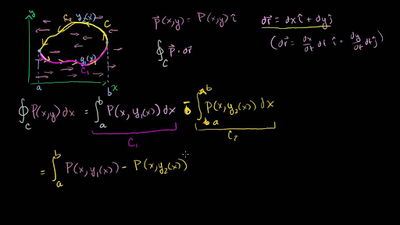 y C₂ y₂(x) C
y₁(x)
C₁
a b x
P⃗(x,y) = P(x,y) î
∮_C P⃗·dr⃗
dr⃗ = dx î + dy ĵ
(dr⃗ = dx/dt dt î + dy/dt dt ĵ)
∮_C P(x,y) dx = ∫_a^b P(x, y₁(x)) dx - ∫_a^b P(x, y₂(x)) dx
C₁ C₂
= ∫_a^b P(x, y₁(x)) - P(x, y₂(x))